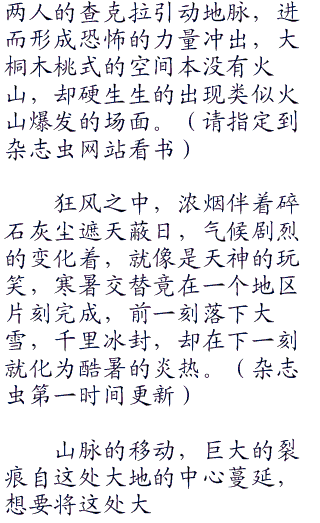 两人的查克拉引动地脉，进
而形成恐怖的力量冲出，大
桐木桃式的空间本没有火
山，却硬生生的出现类似火
山爆发的场面。（请指定到
杂志虫网站看书）
狂风之中，浓烟伴着碎
石灰尘遮天蔽日，气候剧烈
的变化着，就像是天神的玩
笑，寒暑交替竟在一个地区
片刻完成，前一刻落下大
雪，千里冰封，却在下一刻
就化为酷暑的炎热。（杂志
虫第一时间更新）
山脉的移动，巨大的裂
痕自这处大地的中心蔓延，
想要将这处大